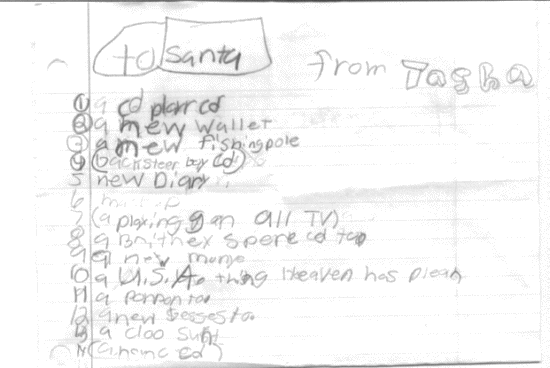 to santa
from Tasha
1 a cd plarr cd
2 a mew wallet
3 a mew fishingpole
4 (backsteer boy cd)
5 new Diary
6
7 (a plaxing gen all TV)
8 a Brithex spere cd tap
9 a new
10 a U.S.A. thing Heaven has
11 a
12 a new
13 a cloo
14 (a cd)